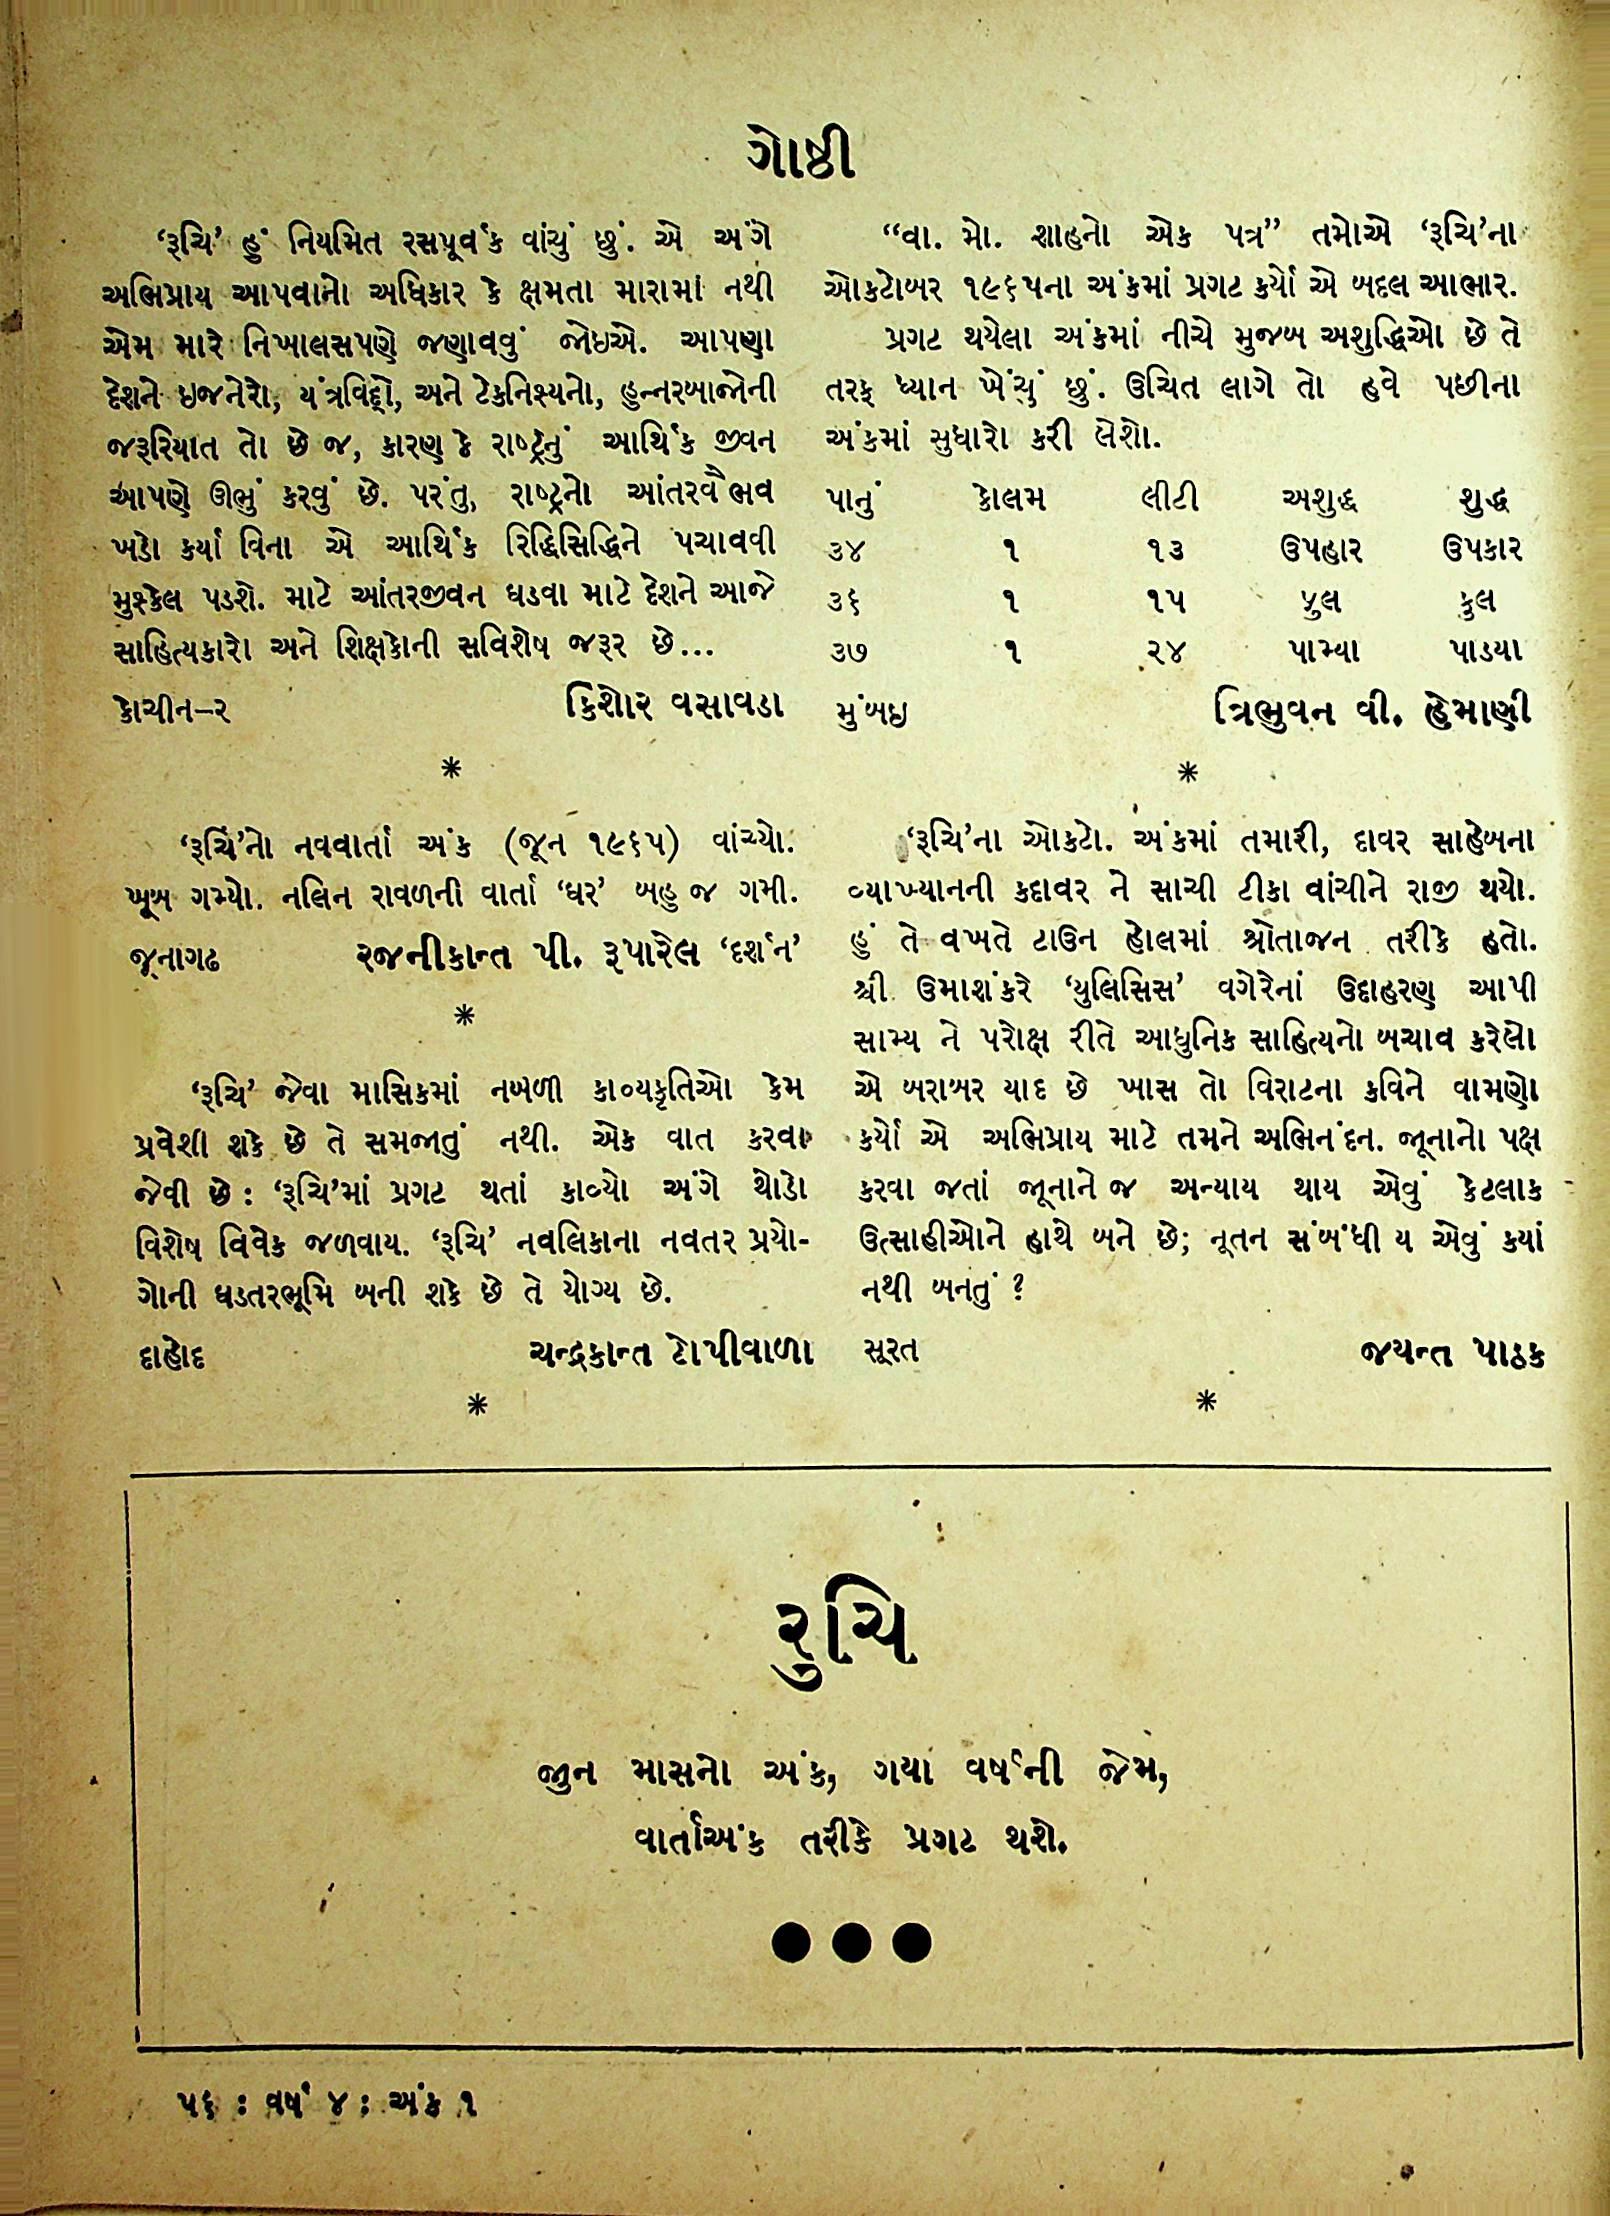 ગોષ્ઠી
‘રૂચિ’ હું નિયમિત રસપૂર્વક વાંચું છું. એ અંગે
અભિપ્રાય આપવાનો અધિકાર કે ક્ષમતા મારામાં નથી
એમ મારે નિખાલસપણે જણાવવું જોઇએ. આપણા
દેશને ઇજનેરો, યંત્રવિદ્દો, અને ટેકનિશ્યનો, હુન્નરબાજોની
જરૂરિયાત તો છે જ, કારણ કે રાષ્ટ્રનું આર્થિક જીવન
આપણે ઊભું કરવું છે. પરંતુ, રાષ્ટ્રનો આંતરવૈભવ
ખડો કર્યા વિના એ આર્થિક રિદ્ધિસિદ્ધિને પચાવવી
મુશ્કેલ પડશે. માટે આંતરજીવન ઘડવા માટે દેશને આજે
સાહિત્યકારો અને શિક્ષકોની સવિશેષ જરૂર છે...
કોચીન–ર કિશોર વસાવડા
*
‘રૂચિ’નો નવવાર્તા અંક (જૂન ૧૯૬૫) વાંચ્યો.
ખૂબ ગમ્યો. નલિન રાવળની વાર્તા ‘ઘર’ બહુ જ ગમી.
જૂનાગઢ રજનીકાન્ત પી. રૂપારેલ ‘દર્શન’
*
‘રૂચિ’ જેવા માસિકમાં નબળી કાવ્યકૃતિઓ કેમ
પ્રવેશી શકે છે તે સમજાતું નથી. એક વાત કરવા
જેવી છે : ‘રૂચિ’માં પ્રગટ થતાં કાવ્યો અંગે થોડો
વિશેષ વિવેક જળવાય. ‘રૂચિ’ નવલિકાના નવતર પ્રયો-
ગોની ઘડતરભૂમિ બની શકે છે તે યોગ્ય છે.
દાહોદ ચન્દ્રકાન્ત ટોપીવાળા
*
“વા. મો. શાહનો એક પત્ર” તમોએ ‘રૂચિ’ના
ઓકટોબર ૧૯૬૫ના અંકમાં પ્રગટ કર્યો એ બદલ આભાર.
પ્રગટ થયેલા અંકમાં નીચે મુજબ અશુદ્ધિઓ છે તે
તરફ ધ્યાન ખેંચું છું. ઉચિત લાગે તો હવે પછીના
અંકમાં સુધારો કરી લેશો.
પાનું કોલમ લીટી અશુદ્ધ શુદ્ધ
૩૪ ૧ ૧૩ ઉપહાર ઉપકાર
૩૬ ૧ ૧૫ પુલ કુલ
૩૭ ૧ ૨૪ પામ્યા પાડયા
મુંબઇ ત્રિભુવન વી. હેમાણી
*
‘રૂચિ’ના ઓકટો. અંકમાં તમારી, દાવર સાહેબના
વ્યાખ્યાનની કદાવર ને સાચી ટીકા વાંચીને રાજી થયો.
હું તે વખતે ટાઉન હોલમાં શ્રોતાજન તરીકે હતો.
શ્રી ઉમાશંકરે ‘યુલિસિસ’ વગેરેનાં ઉદાહરણ આપી
સામ્ય ને પરોક્ષ રીતે આધુનિક સાહિત્યનો બચાવ કરેલો
એ બરાબર યાદ છે ખાસ તો વિરાટના કવિને વામણો
કર્યો એ અભિપ્રાય માટે તમને અભિનંદન. જૂનાનો પક્ષ
કરવા જતાં જૂનાને જ અન્યાય થાય એવું કેટલાક
ઉત્સાહીઓને હાથે બને છે; નૂતન સંબંધી ય એવું કયાં
નથી બનતું ?
સૂરત જયન્ત પાઠક
*
રુચિ
જીન માસનો અંક, ગયા વર્ષની જેમ,
વાર્તાઅંક તરીકે પ્રગટ થશે.
●●●
૫૬ : વર્ષ ૪ : અંક ૧